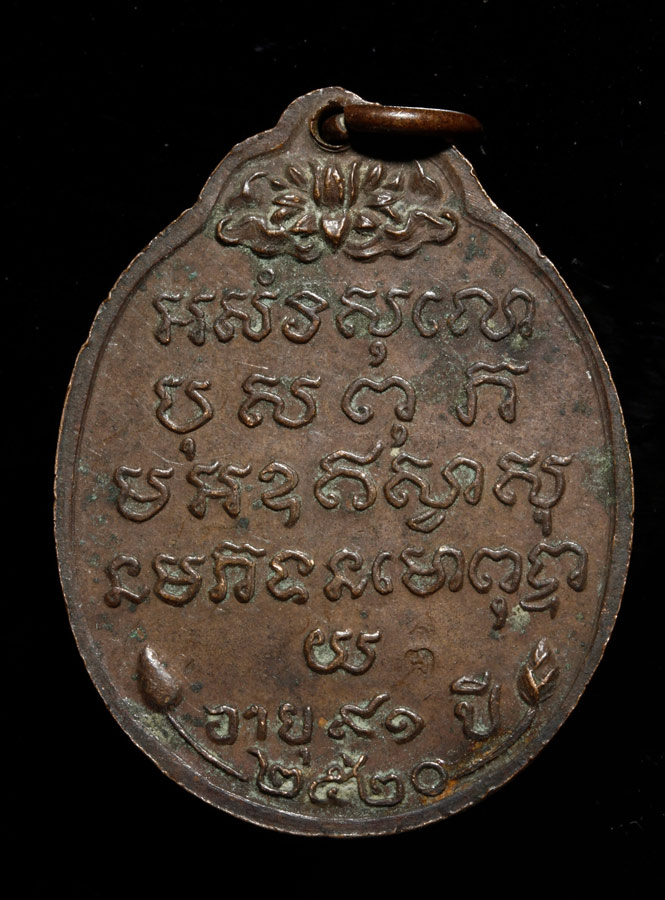 អសំវិសុលោ
បុសពុភ
មអឧឥស្វាសុ
នមភទនមោពុទ្ធា
យ
อายุ ๙๑ ปี
๒๕๒๐